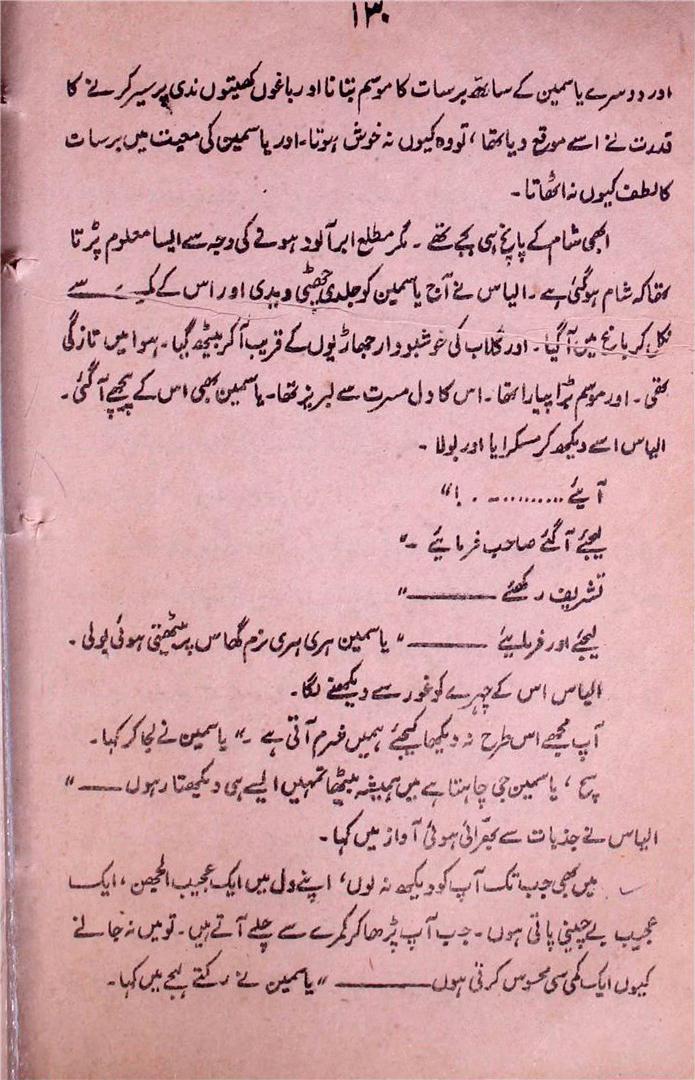 ۱۳۰
اور دوسرے یاسمین کے ساتھ برسات کا موسم بتانا اور باغوں کھیتوں ندی پر سیر کرنے کا
قدرت نے اسے موقع دیا تھا، تو وہ کیوں نہ خوش ہوتا۔ اور یاسمین کی معیت میں برسات
کا لطف کیوں نہ اٹھاتا۔
ابھی شام کے پانچ ہی بجے تھے۔ مگر مطلع ابر آلود ہونے کی وجہ سے ایسا معلوم پڑتا
تھا کہ شام ہو گئی ہے۔ الیاس نے آج یاسمین کو جلدی چھٹی دیدی اور اس کے کمرے سے
نکل کر باغ میں آ گیا۔ اور گلاب کی خوشبودار جھاڑیوں کے قریب آ کر بیٹھ گیا۔ ہوا میں تازگی
تھی۔ اور موسم بڑا پیارا تھا۔ اس کا دل مسرت سے لبریز تھا۔ یاسمین بھی اس کے پیچھے آ گئی۔
الیاس اسے دیکھ کر مسکرایا اور بولا۔
آیئے ........... !"
لیجئے آ گئے صاحب فرمایئے ۔"
تشریف رکھئے ــــــــــ"
لیجئے اور فرمایئے ــــــــــ" یاسمین ہری ہری نرم گھاس پر بیٹھتی ہوئی بولی۔
الیاس اس کے چہرے کو غور سے دیکھنے لگا۔
آپ مجھے اس طرح نہ دیکھا کیجئے ہمیں شرم آتی ہے ۔" یاسمین نے لجا کر کہا۔
سچ، یاسمین جی چاہتا ہے میں ہمیشہ بیٹھا تمہیں ایسے ہی دیکھتا رہوں ـــــ"
الیاس نے جذبات سے بھرائی ہوئی آواز میں کہا۔
میں بھی جب تک آپ کو دیکھ نہ لوں، اپنے دل میں ایک عجیب الجھن، ایک
عجیب بے چینی پاتی ہوں۔ جب آپ پڑھا کر کمرے سے چلے آتے ہیں۔ تو میں نہ جانے
کیوں ایک کمی سی محسوس کرتی ہوں ــــــــــ" یاسمین نے رکتے لہجے میں کہا۔